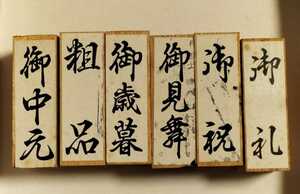 御中元
粗品
御歳暮
御見舞
御祝
御礼